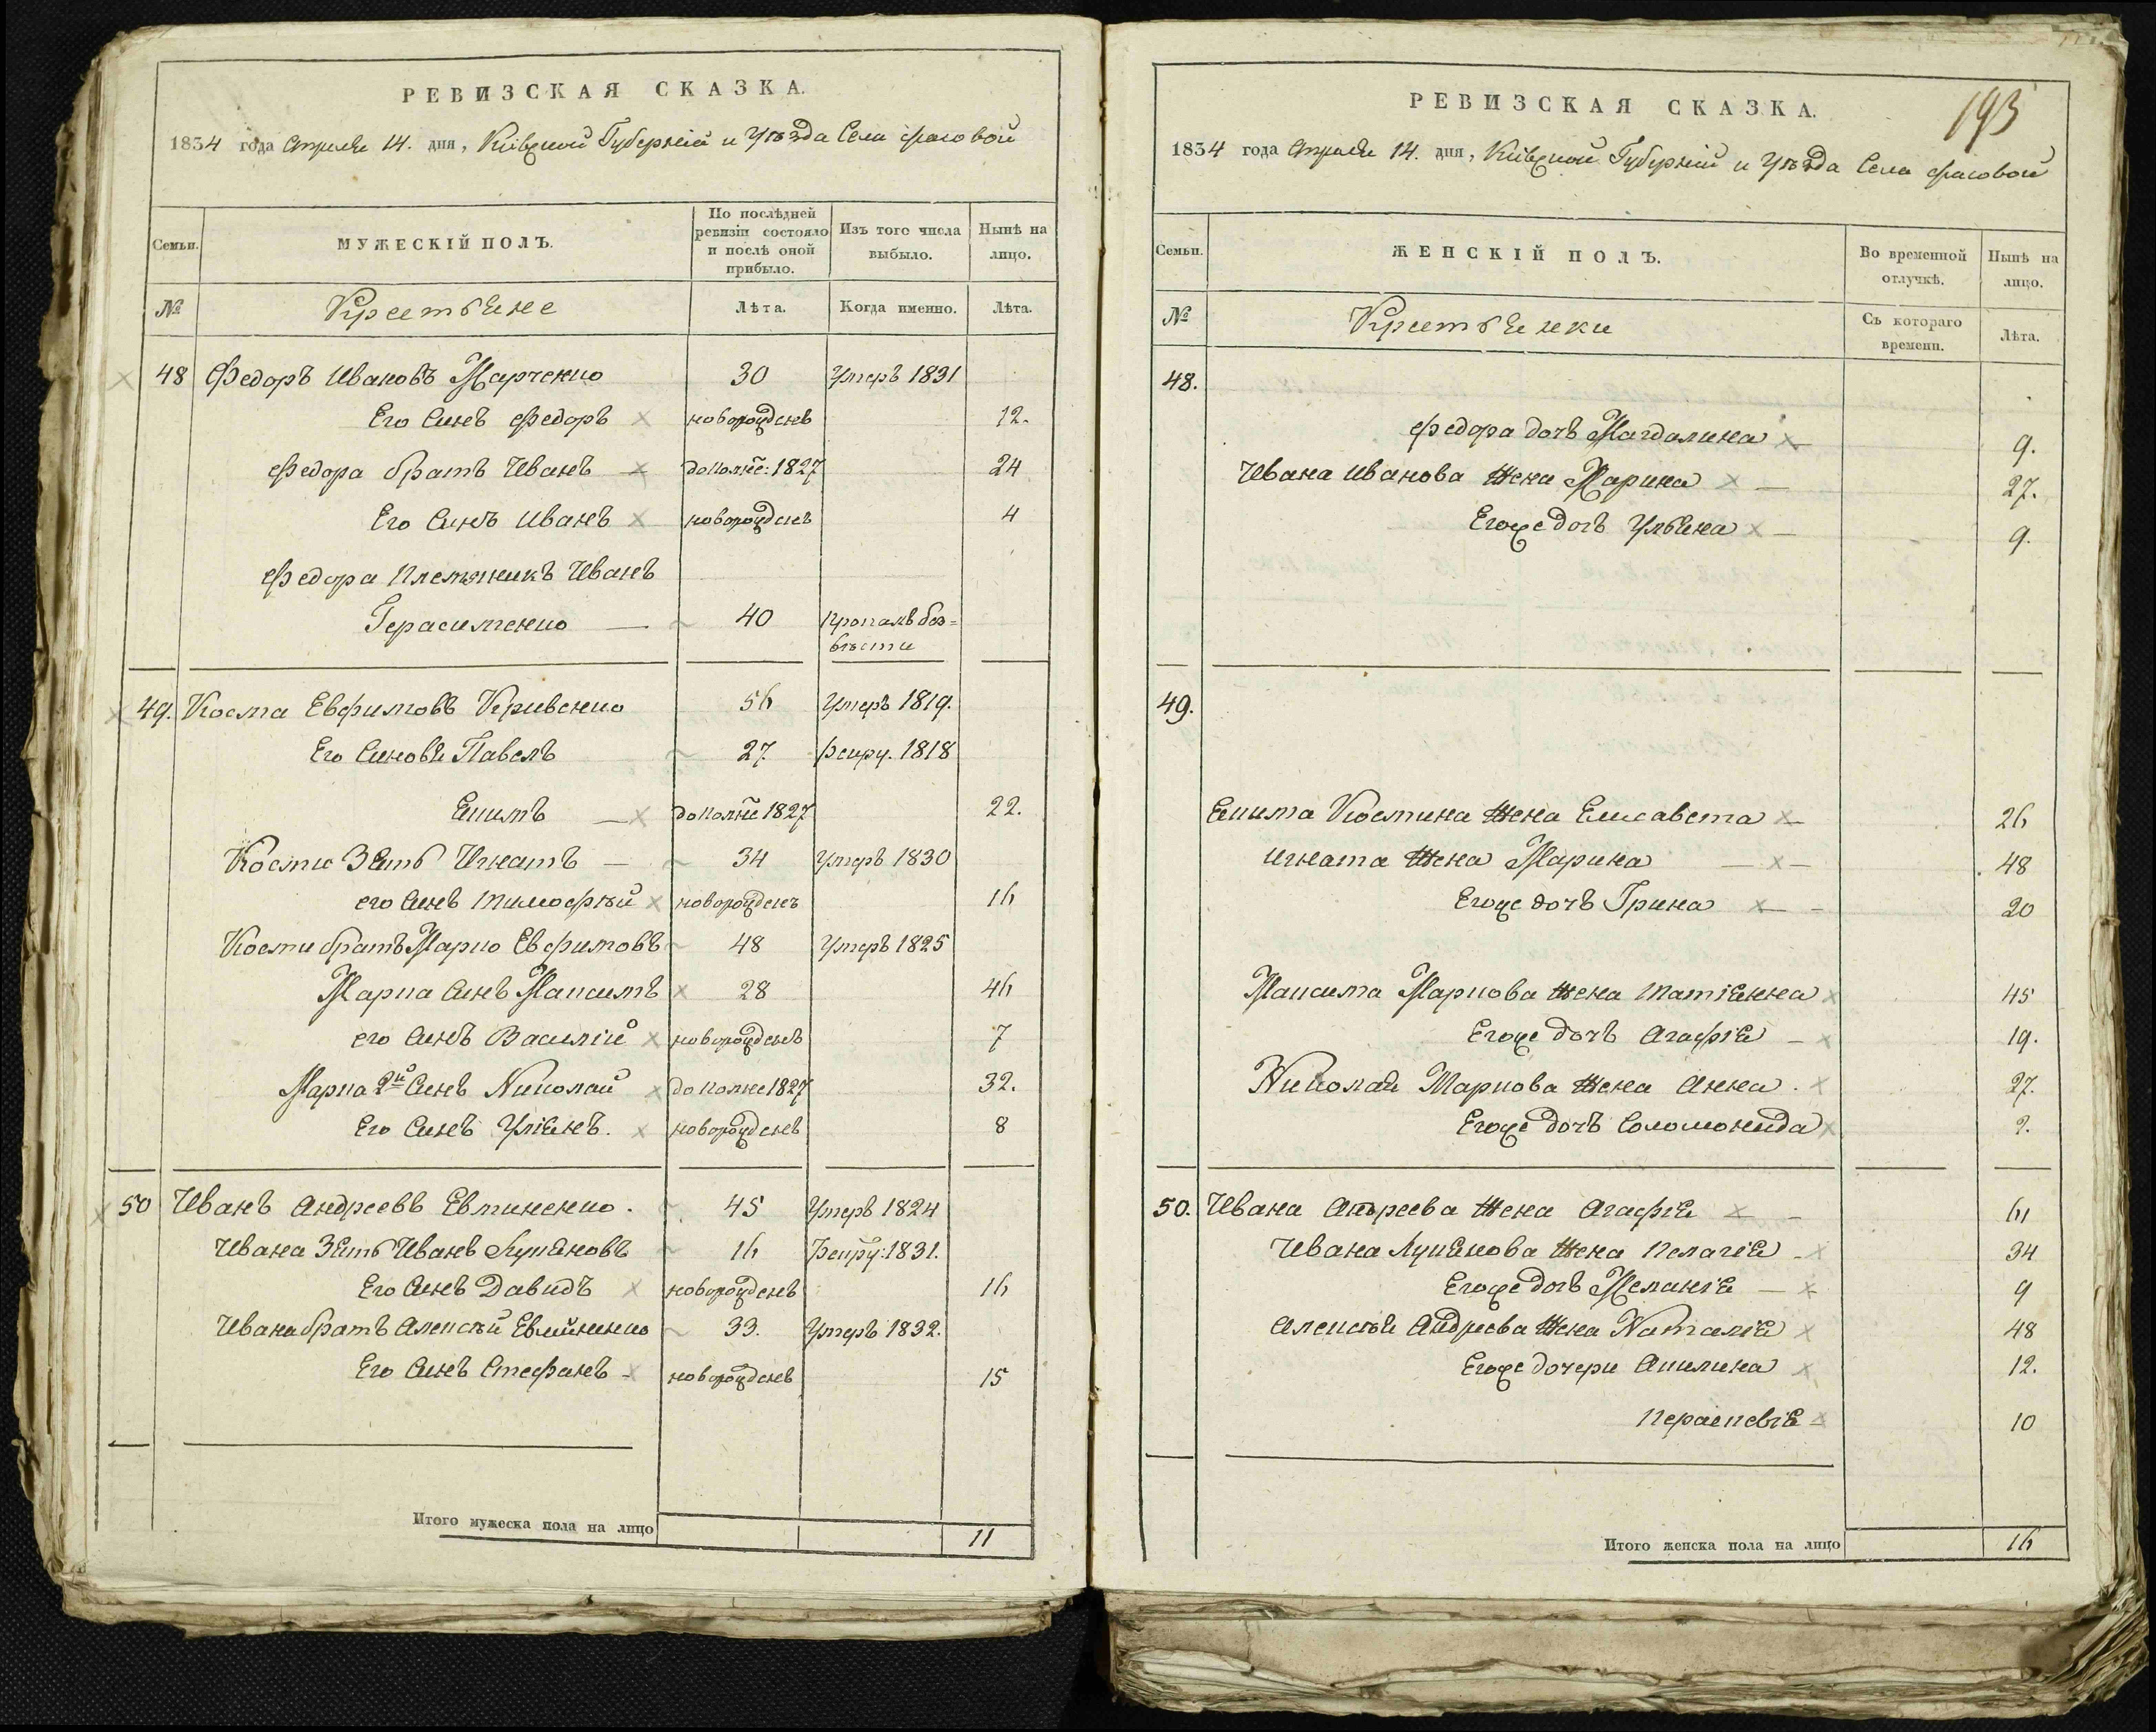 РЕВИЗСКАЯ СКАЗКА.
1834 года Апреля 14. дня, Кіевской Губерніи и Уѣзда Села Фасовой
Семьи.
МУЖЕСКІЙ ПОЛЪ.
По послѣдней ревизіи состояло и послѣ оной прибыло.
Изъ того числа выбыло.
Нынѣ на лицо.
№
Крестьяне
Лѣта.
Когда именно.
Лѣта.
48 Федоръ Ивановъ Марченко 30 Умеръ 1831
Его Синъ Федоръ новорожденъ 12.
Федора братъ Иванъ дополне: 1827 24
Его Синъ Иванъ новорожденъ 4
Федора Племяникъ Иванъ
Герасименко 40 пропалъ без=
вѣсти
49. Косма Евфимовъ Кривенко 56 Умеръ 1819.
Его Синовя Павелъ 27. рекру. 1818
Екимъ дополне 1827 22.
Косми Зять Игнатъ 34 Умеръ 1830
его Синъ Тимофѣй новорожденъ 16
Косми братъ Марко Евфимовъ 48 Умеръ 1825
Марка Синъ Максимъ 28 46
его Синъ Василій новорожденъ 7
Марка 2й Синъ Николай дополне 1827 32.
Его Синъ Уліянъ. новорожденъ 8
50 Иванъ Андреевъ Евминенко. 45 Умеръ 1824
Ивана Зять Иванъ Лукяновъ 16 Рекру: 1831.
Его Синъ Давидъ новорожденъ 16
Ивана братъ Алексѣй Евминенко 33. Умеръ 1832.
Его Синъ Стефанъ новорожденъ 15
Итого мужеска пола на лицо 11
193
РЕВИЗСКАЯ СКАЗКА.
1834 года Апреля 14. дня, Кіевской Губерніи и Уѣзда Села Фасовой
Семьи.
ЖЕНСКІЙ ПОЛЪ.
Во временной отлучкѣ.
Нынѣ на лицо.
№
Крестьянки
Съ котораго времени.
Лѣта.
48.
Федора дочъ Магдалина 9.
Ивана Иванова Жена Марина 27.
Егоже дочъ Улбяна 9.
49.
Екима Космина Жена Елисавета 26
Игната Жена Марина 48
Егоже дочъ Ирина 20
Максима Маркова Жена Татіянна 45
Егоже дочъ Агафія 19.
Николая Маркова Жена Анна. 27.
Егоже дочъ Соломонида 2.
50. Ивана Андреева Жена Агафія 61
Ивана Лукянова Жена Пелагія 34
Егоже дочъ Меланія 9
Алексѣя Андреева Жена Наталія 48
Егоже дочери Акилина 12.
Пераскевія 10
Итого женска пола на лицо 16